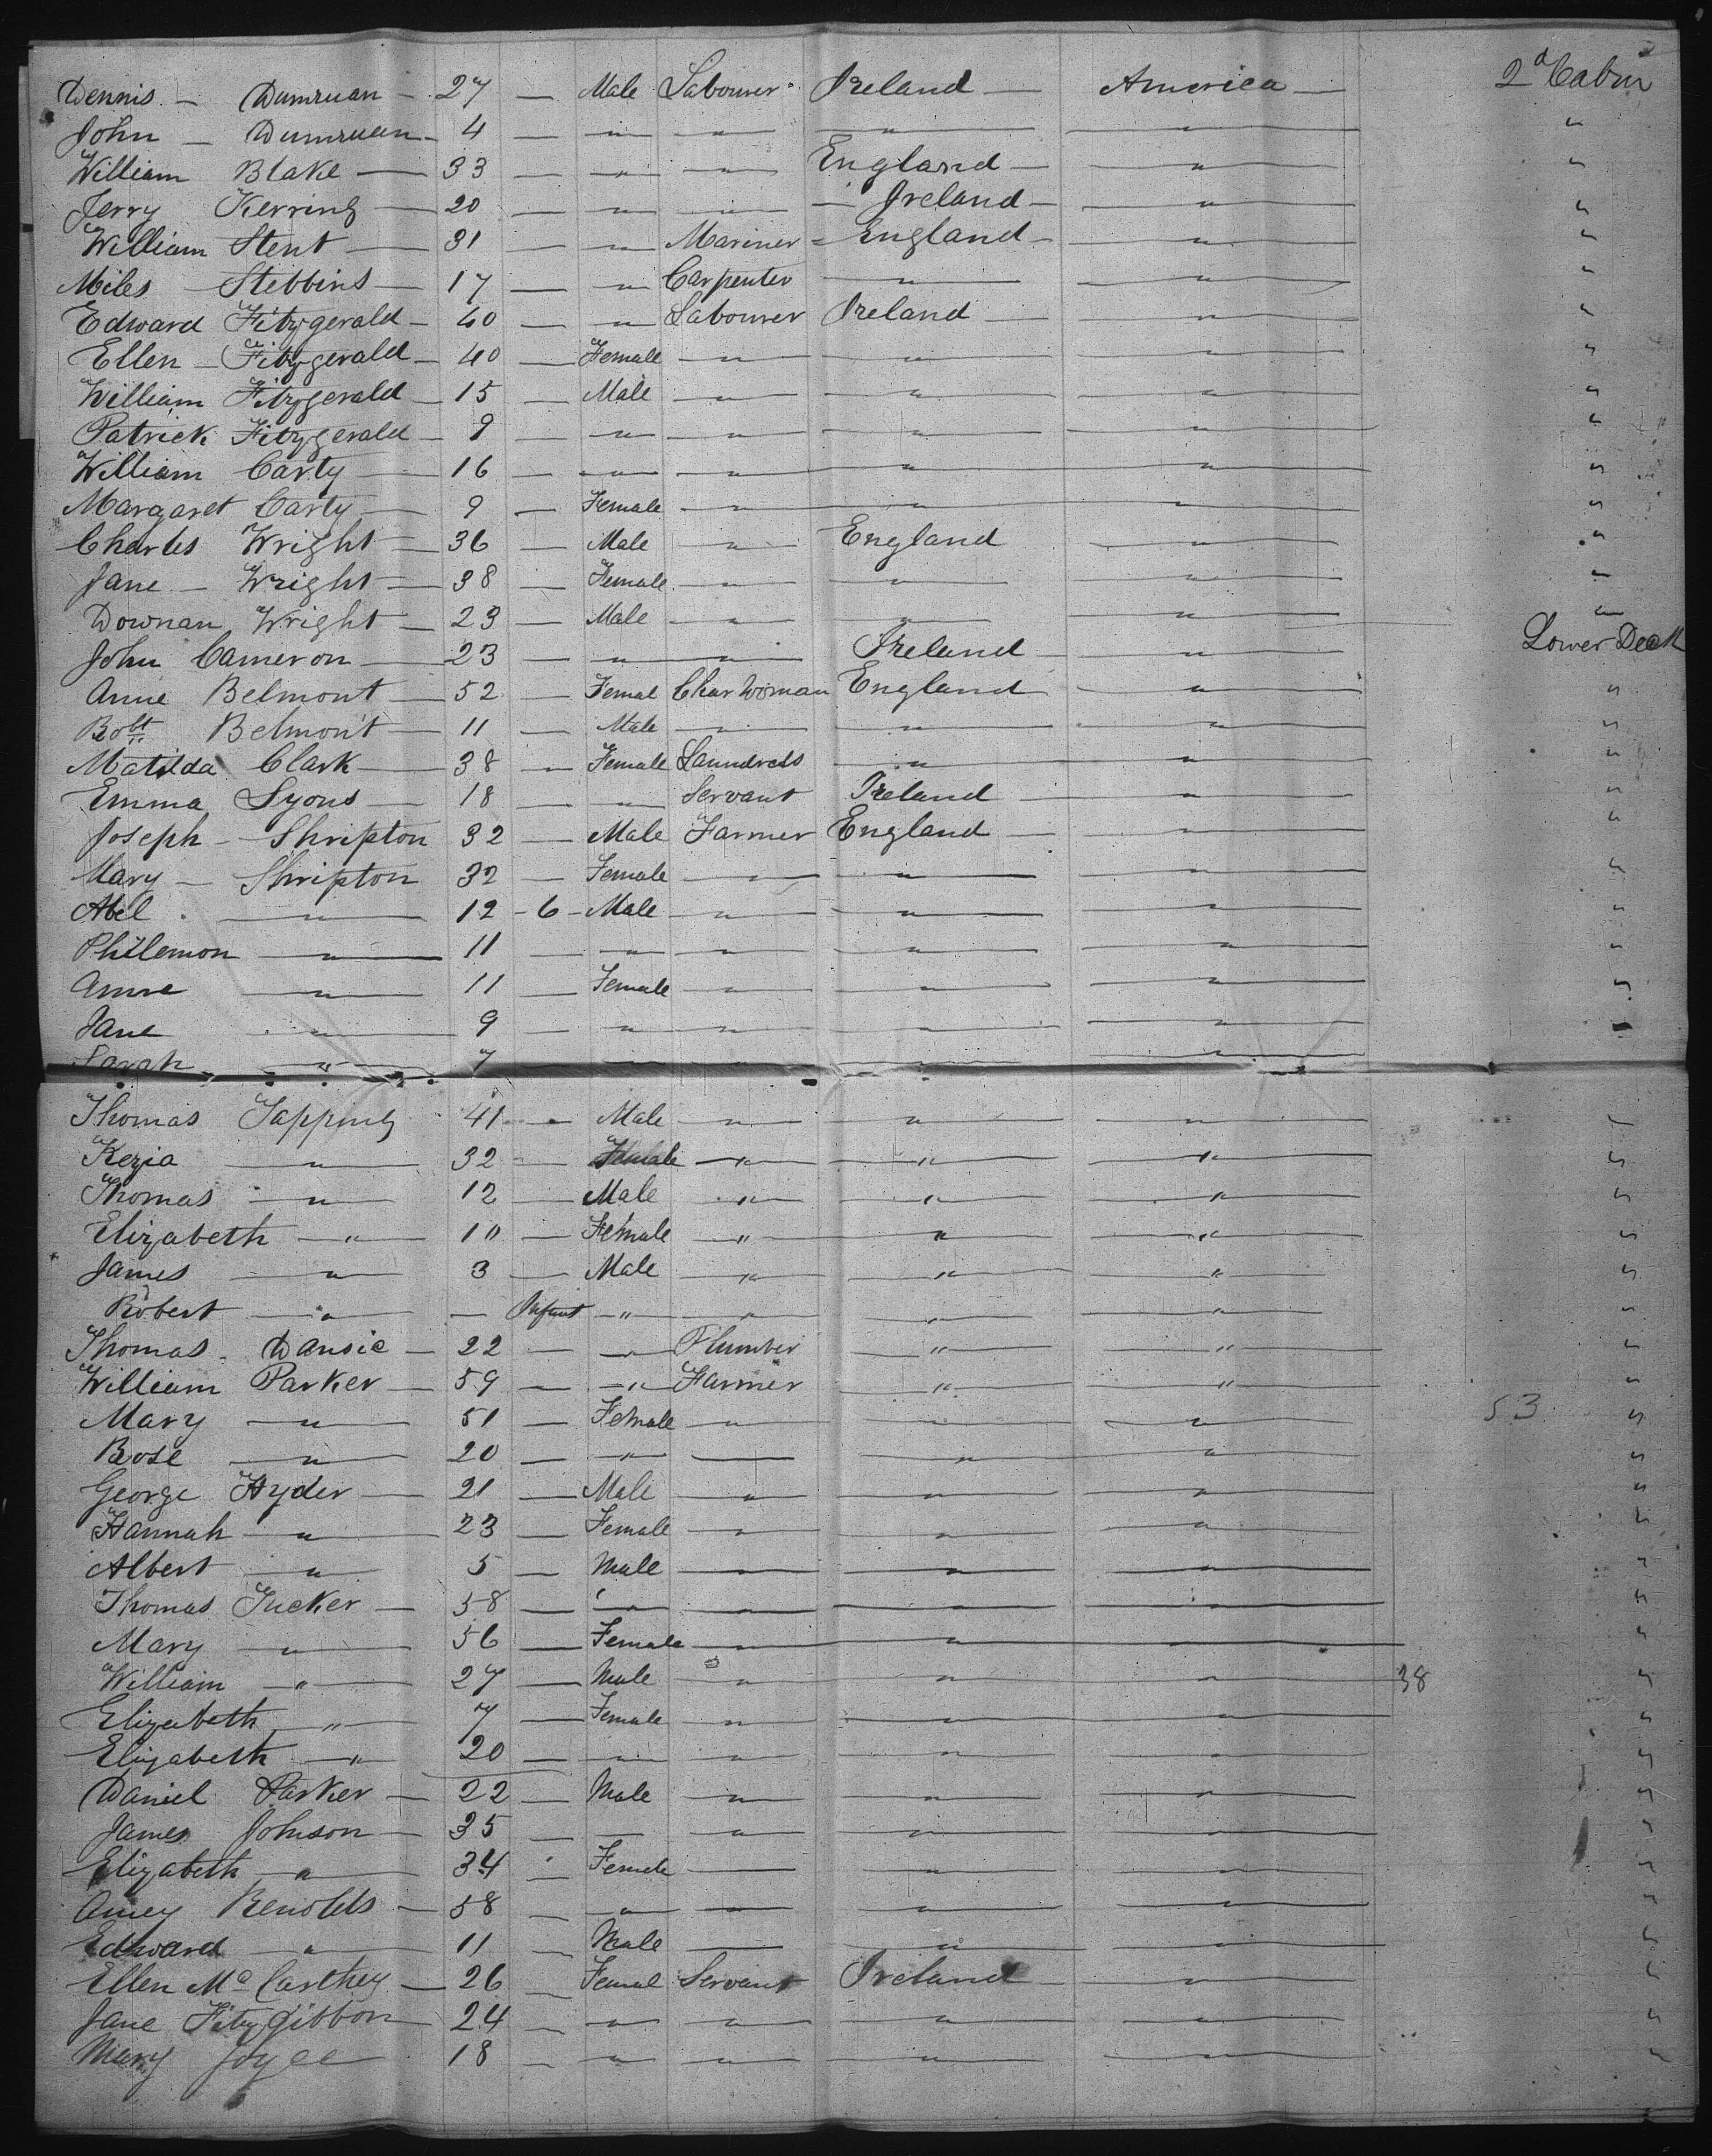 Dennis - Dumruan - 27 - Male Labourer Ireland - America - 2d Cabin
John - Dumruan - 4 - " " " " "
William Blake - 33 - " " England - " "
Jerry Kerring - 20 - " " - Ireland - " "
William Stent - 31 - " Mariner - England - " "
Miles - Stebbins - 17 - " Carpenter " " "
Edward Fitzgerald - 40 - " Labourer Ireland - " "
Ellen - Fitzgerald - 40 - Female " " " "
William Fitzgerald - 15 - Male " " " "
Patrick Fitzgerald - 9 - " " " " "
William Carty - 16 - " " " " "
Margaret Carty - 9 - Female " " " "
Charles Wright - 36 - Male " England " "
Jane - Wright - 38 - Female " " " "
Downan Wright - 23 - Male " " " "
John Cameron - 23 - " " Ireland - " Lower Deck
Anne Belmont - 52 - Femal Char Woman England " "
Robt Belmont - 11 - Male " " " "
Matilda Clark - 38 - Female Laundress " " "
Emma Lyons - 18 - " Servant Ireland - " "
Joseph - Shripton 32 - Male Farmer England - " "
Mary - Shripton 32 - Female " " " "
Abel " 12 - 6 - Male " " " "
Philemon " 11 - " " " " "
Anne " 11 - Female " " " "
Jane " 9 - " " " " "
Sarah " 7 " " " "
Thomas Tapping 41 - Male " " " "
Kezia " 32 - Female " " " "
Thomas " 12 - Male " " " "
Elizabeth " 10 - Female " " " "
James " 3 - Male " " " "
Robert " - Infant " " " " "
Thomas - Dansie - 22 - " Plumber " " "
William Parker - 59 - " Farmer " " "
Mary " 51 - Female " " " 53 "
Rose " 20 - " - " " "
George Hyder - 21 - Male " " " "
Hannah " 23 - Female " " " "
Albert " 5 - Male " " " "
Thomas Tucker - 58 - " " " " "
Mary " 56 - Female " " " "
William " 27 - Male " " " 38 "
Elizabeth " 7 - Female " " " "
Elizabeth " 20 - " " " " "
Daniel Parker - 22 - Male " " " "
James Johnson - 35 - - " " " "
Elizabeth " 34 - Female - " " "
Amey Renolds - 58 - " - " " "
Edward " 11 - Male - " " "
Ellen Mc Carthey - 26 - Femal Servant Ireland - " "
Jane Fitzgibbon - 24 - " " " " "
Mary Joyce - 18 - " " " " "